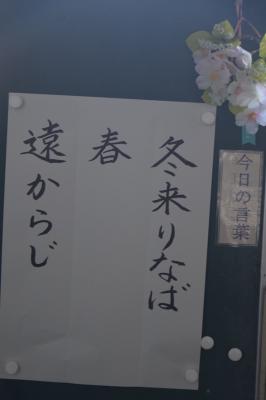 今日の言葉
冬来りなば
春
遠からじ